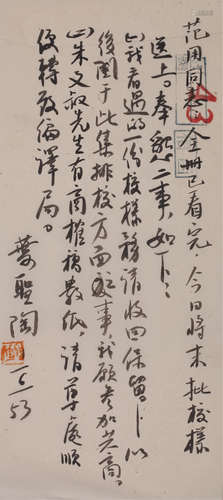 范用同志：全册已看完，今日将末批校样
送上。奉恳二事如下：（
一）我看过的一份校样务请收回保留，以
后关于此集排校方面之事，我愿参加共商。
（二）朱文叔先生有商榷稿数纸，请尊处顺
便转致编译局。
叶圣陶